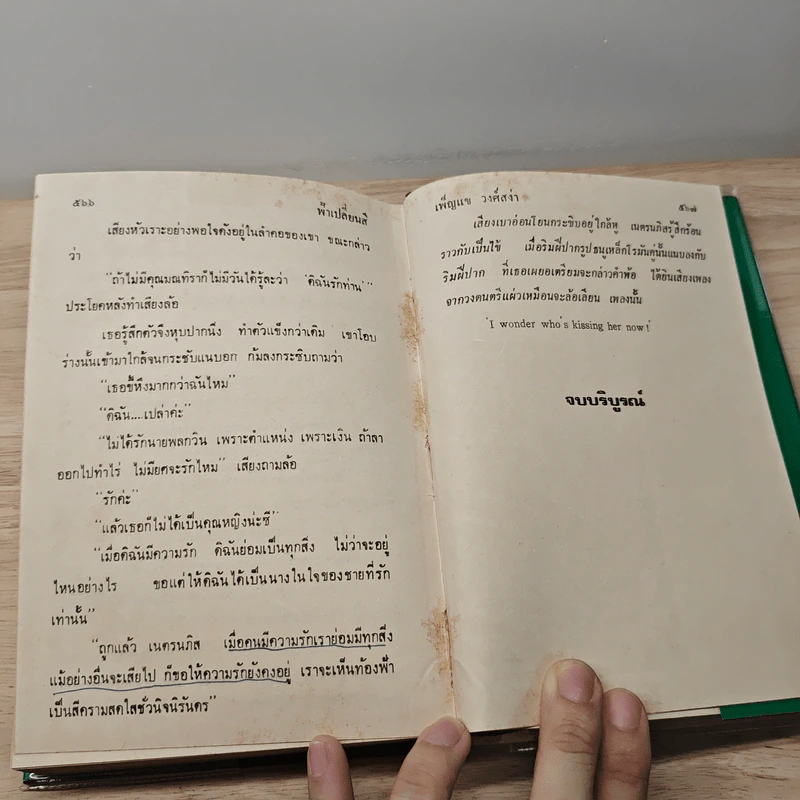 ๕๖๖ ฟ้าเปลี่ยนสี
เสียงหัวเราะอย่างพอใจดังอยู่ในลำคอของเขา ขณะกล่าว
ว่า
“ถ้าไม่มีคุณมณทิราก็ไม่มีวันได้รู้ละว่า ‘ดิฉันรักท่าน’”
ประโยคหลังทำเสียงล้อ
เธอรู้สึกตัวจึงหุบปากนิ่ง ทำตัวแข็งกว่าเดิม เขาโอบ
ร่างนั้นเข้ามาใกล้จนกระชับแนบอก ก้มลงกระซิบถามว่า
“เธอขี้หึงมากกว่าฉันไหม”
“ดิฉัน....เปล่าค่ะ”
“ไม่ได้รักนายพลกวิน เพราะตำแหน่ง เพราะเงิน ถ้าลา
ออกไปทำไร่ ไม่มียศจะรักไหม” เสียงถามล้อ
“รักค่ะ”
“แล้วเธอก็ไม่ได้เป็นคุณหญิงน่ะซี”
“เมื่อดิฉันมีความรัก ดิฉันย่อมเป็นทุกสิ่ง ไม่ว่าจะอยู่
ไหนอย่างไร ขอแต่ให้ดิฉันได้เป็นนางในใจของชายที่รัก
เท่านั้น”
“ถูกแล้ว เนตรนภิส เมื่อคนมีความรักเราย่อมมีทุกสิ่ง
แม้อย่างอื่นจะเสียไป ก็ขอให้ความรักยังคงอยู่ เราจะเห็นท้องฟ้า
เป็นสีครามสดใสชั่วนิจนิรันดร”
เพ็ญแข วงศ์สง่า ๕๖๗
เสียงเบาอ่อนโยนกระซิบอยู่ใกล้หู เนตรนภิสรู้สึกร้อน
ราวกับเป็นไข้ เมื่อริมฝีปากรูปธนูเหล็กโรมันคู่นั้นแนบลงกับ
ริมฝีปาก ที่เธอเผยอเตรียมจะกล่าวคำพ้อ ได้ยินเสียงเพลง
จากวงดนตรีแผ่วเหมือนจะล้อเลียน เพลงนั้น
‘I wonder who's kissing her now!’
จบบริบูรณ์